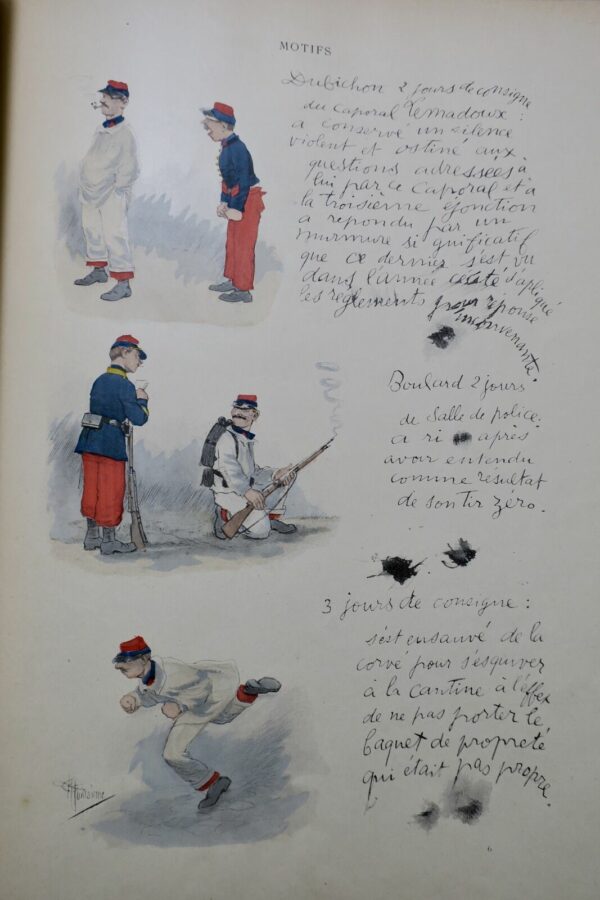 MOTIFS
Dubichon 2 jours de consigne
du Caporal Lemadoux :
a conservé un silence
violent et ostiné aux
questions adressées à
lui par ce Caporal et à
la troisième ejonction
a repondu par un
murmure si gnificatif
que ce dernier s'est vu
dans l'année cesité d'apliqué
les reglements pour réponse
inconvenante
Boulard 2 jours
de Salle de police.
a ri après
avoir entendu
comme résultat
de son tir zéro.
3 jours de consigne :
s'est ensauvé de la
corvé pour s'esquiver
à la Cantine à l'effet
de ne pas porter le
baquet de propreté
qui était pas propre.
6